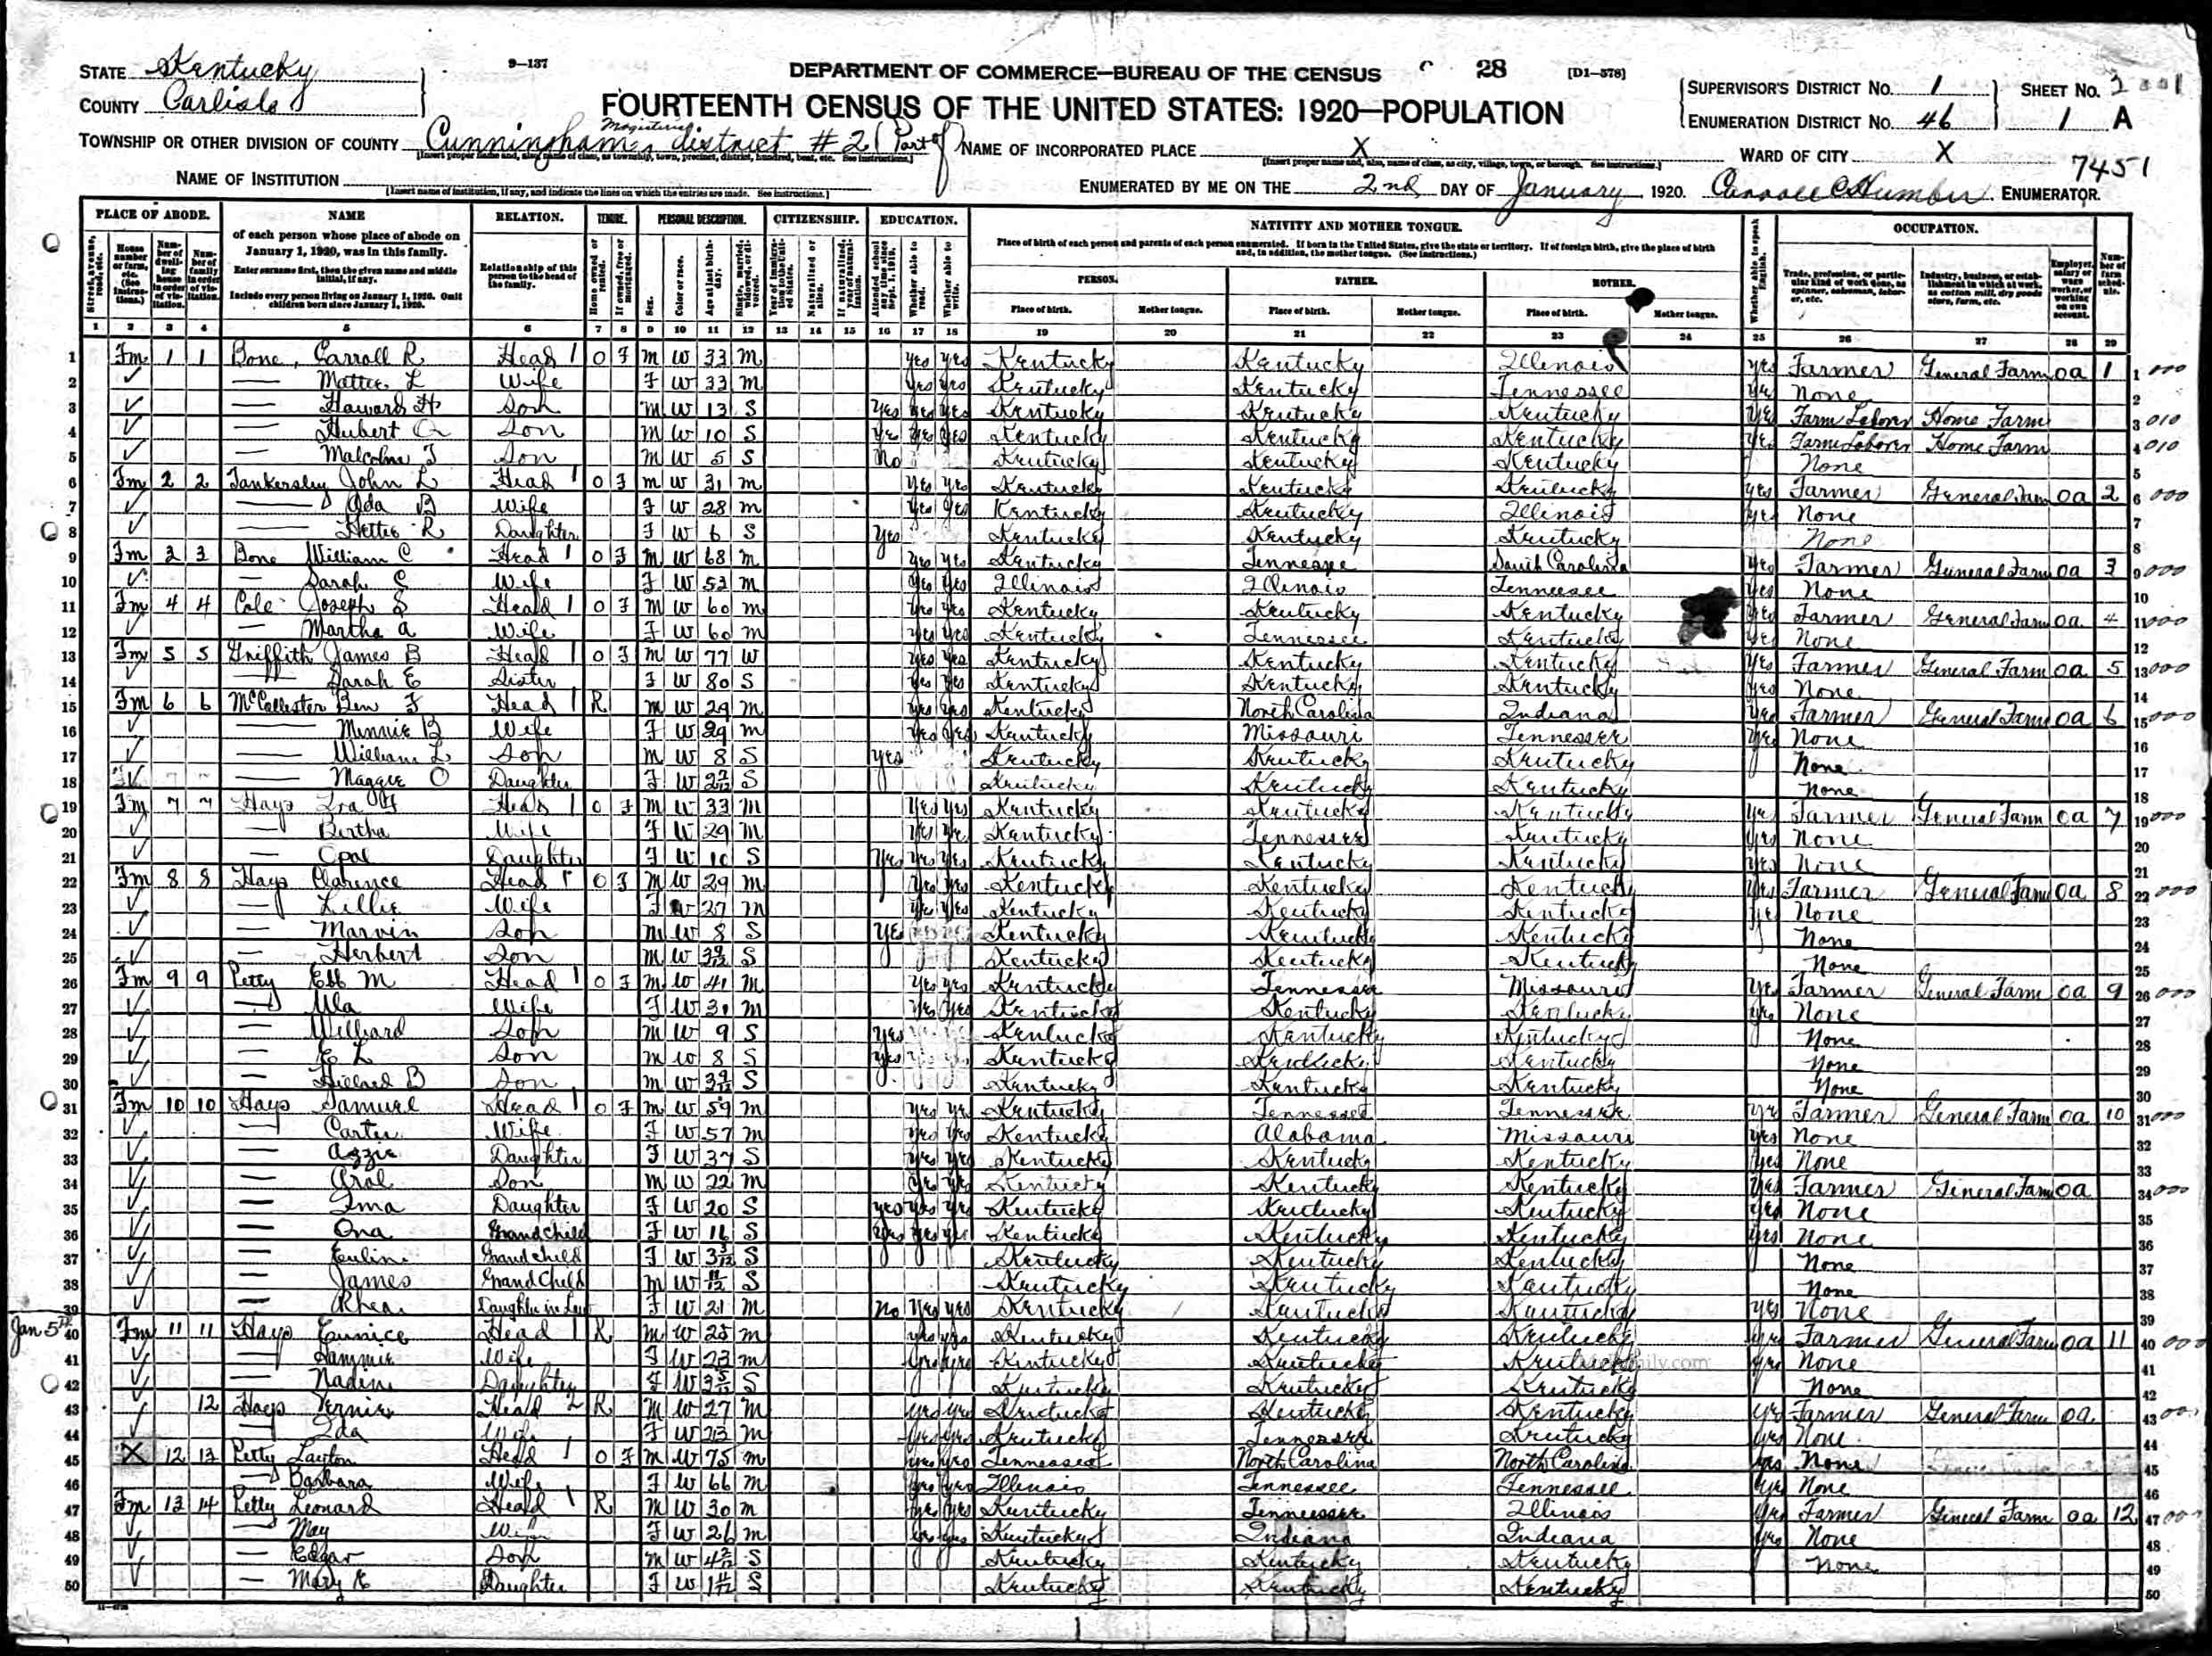 9—137
DEPARTMENT OF COMMERCE—BUREAU OF THE CENSUS 28 [D1-578]
STATE Kentucky
COUNTY Carlisle
FOURTEENTH CENSUS OF THE UNITED STATES: 1920—POPULATION
SUPERVISOR'S DISTRICT No. 1 SHEET No.
ENUMERATION DISTRICT No. 46 1 A
TOWNSHIP OR OTHER DIVISION OF COUNTY Cunningham Magisterial district # 2 (Part of)
NAME OF INCORPORATED PLACE X WARD OF CITY X
7451
NAME OF INSTITUTION
[Insert name of institution, if any, and indicate the lines on which the entries are made. See instructions.]
ENUMERATED BY ME ON THE 2nd DAY OF January, 1920. ENUMERATOR.
PLACE OF ABODE. NAME RELATION. TENURE. PERSONAL DESCRIPTION. CITIZENSHIP. EDUCATION. NATIVITY AND MOTHER TONGUE. OCCUPATION.
of each person whose place of abode on January 1, 1920, was in this family.
Enter surname first, then the given name and middle initial, if any.
Include every person living on January 1, 1920. Omit children born since January 1, 1920.
Relationship of this person to the head of the family.
Place of birth of each person and parents of each person enumerated. If born in the United States, give the state or territory. If of foreign birth, give the place of birth and, in addition, the mother tongue. (See instructions.)
PERSON. FATHER. MOTHER.
Place of birth. Mother tongue. Place of birth. Mother tongue. Place of birth. Mother tongue.
1 2 3 4 5 6 7 8 9 10 11 12 13 14 15 16 17 18 19 20 21 22 23 24 25 26 27 28 29
1 Fm 1 1 Bone, Carroll R Head 1 O F M W 33 M yes yes Kentucky Kentucky Illinois yes Farmer General Farm OA 1
2 Mattie L Wife F W 33 M yes yes Kentucky Kentucky Tennessee yes None
3 Howard H Son M W 13 S yes yes yes Kentucky Kentucky Kentucky yes Farm Laborer Home Farm
4 Hubert Son M W 10 S yes yes yes Kentucky Kentucky Kentucky yes Farm Laborer Home Farm
5 Malcolm T Son M W 5 S no Kentucky Kentucky Kentucky None
6 Fm 2 2 Tankersley John L Head 1 O F M W 31 M yes yes Kentucky Kentucky Kentucky yes Farmer General Farm OA 2
7 Oda B Wife F W 28 M yes yes Kentucky Kentucky Illinois yes None
8 Hettie R Daughter F W 6 S yes Kentucky Kentucky Kentucky None
9 Fm 3 3 Bone William C Head 1 O F M W 68 M yes yes Kentucky Tennessee South Carolina yes Farmer General Farm OA 3
10 Sarah E Wife F W 53 M yes yes Illinois Illinois Tennessee yes None
11 Fm 4 4 Cole Joseph S Head 1 O F M W 60 M yes yes Kentucky Kentucky Kentucky yes Farmer General Farm OA 4
12 Martha A Wife F W 60 M yes yes Kentucky Tennessee Kentucky yes None
13 Fm 5 5 Griffith James B Head 1 O F M W 77 W yes yes Kentucky Kentucky Kentucky yes Farmer General Farm OA 5
14 Sarah E Sister F W 80 S yes yes Kentucky Kentucky Kentucky yes None
15 Fm 6 6 McCallister Ben F Head 1 R M W 29 M yes yes Kentucky North Carolina Indiana yes Farmer General Farm OA 6
16 Minnie B Wife F W 29 M yes yes Kentucky Missouri Tennessee yes None
17 William L Son M W 8 S yes Kentucky Kentucky Kentucky None
18 Maggie O Daughter F W S Kentucky Kentucky Kentucky None
19 Fm 7 7 Hays Ira Head 1 O F M W 33 M yes yes Kentucky Kentucky Kentucky yes Farmer General Farm OA 7
20 Bertha Wife F W 29 M yes yes Kentucky Tennessee Kentucky yes None
21 Opal Daughter F W 10 S yes yes yes Kentucky Kentucky Kentucky yes None
22 Fm 8 8 Hays Clarence Head 1 O F M W 29 M yes yes Kentucky Kentucky Kentucky yes Farmer General Farm OA 8
23 Lillie Wife F W 27 M yes yes Kentucky Kentucky Kentucky yes None
24 Marvin Son M W 8 S yes Kentucky Kentucky Kentucky None
25 Herbert Son M W S Kentucky Kentucky Kentucky None
26 Fm 9 9 Petty Ebb M Head 1 O F M W 41 M yes yes Kentucky Tennessee Missouri yes Farmer General Farm OA 9
27 Ula Wife F W 31 M yes yes Kentucky Kentucky Kentucky yes None
28 Willard Son M W 9 S yes Kentucky Kentucky Kentucky None
29 E L Son M W 8 S yes Kentucky Kentucky Kentucky None
30 Hillard B Son M W S Kentucky Kentucky Kentucky None
31 Fm 10 10 Hays Samuel Head 1 O F M W 59 M yes yes Kentucky Tennessee Tennessee yes Farmer General Farm OA 10
32 Carter Wife F W 57 M yes yes Kentucky Alabama Missouri yes None
33 Ozzie Daughter F W 37 S yes yes Kentucky Kentucky Kentucky yes None
34 Oral Son M W 22 M yes yes Kentucky Kentucky Kentucky yes Farmer General Farm OA
35 Ima Daughter F W 20 S yes yes yes Kentucky Kentucky Kentucky yes None
36 Ona Grandchild F W 16 S yes yes yes Kentucky Kentucky Kentucky yes None
37 Euline Grandchild F W S Kentucky Kentucky Kentucky None
38 James Grandchild M W 11/12 S Kentucky Kentucky Kentucky None
39 Rhea Daughter in Law F W 21 M no yes yes Kentucky Kentucky Kentucky yes None
Jan 5th 40 Fm 11 11 Hays Eunice Head 1 R M W 25 M yes yes Kentucky Kentucky Kentucky yes Farmer General Farm OA 11
41 Sammie Wife F W 23 M yes yes Kentucky Kentucky Kentucky yes None
42 Nadine Daughter F W S Kentucky Kentucky Kentucky None
43 12 Hays Vernie Head 2 R M W 27 M yes yes Kentucky Kentucky Kentucky yes Farmer General Farm OA
44 Ida Wife F W 23 M yes yes Kentucky Tennessee Kentucky yes None
45 X 12 13 Petty Layton Head 1 O F M W 75 M yes yes Tennessee North Carolina North Carolina yes None
46 Barbara Wife F W 66 M yes yes Illinois Tennessee Tennessee yes None
47 Fm 13 14 Petty Leonard Head 1 R M W 30 M yes yes Kentucky Tennessee Illinois yes Farmer General Farm OA 12
48 May Wife F W 26 M yes yes Kentucky Indiana Indiana yes None
49 Edgar Son M W S Kentucky Kentucky Kentucky None
50 Mary E Daughter F W S Kentucky Kentucky Kentucky